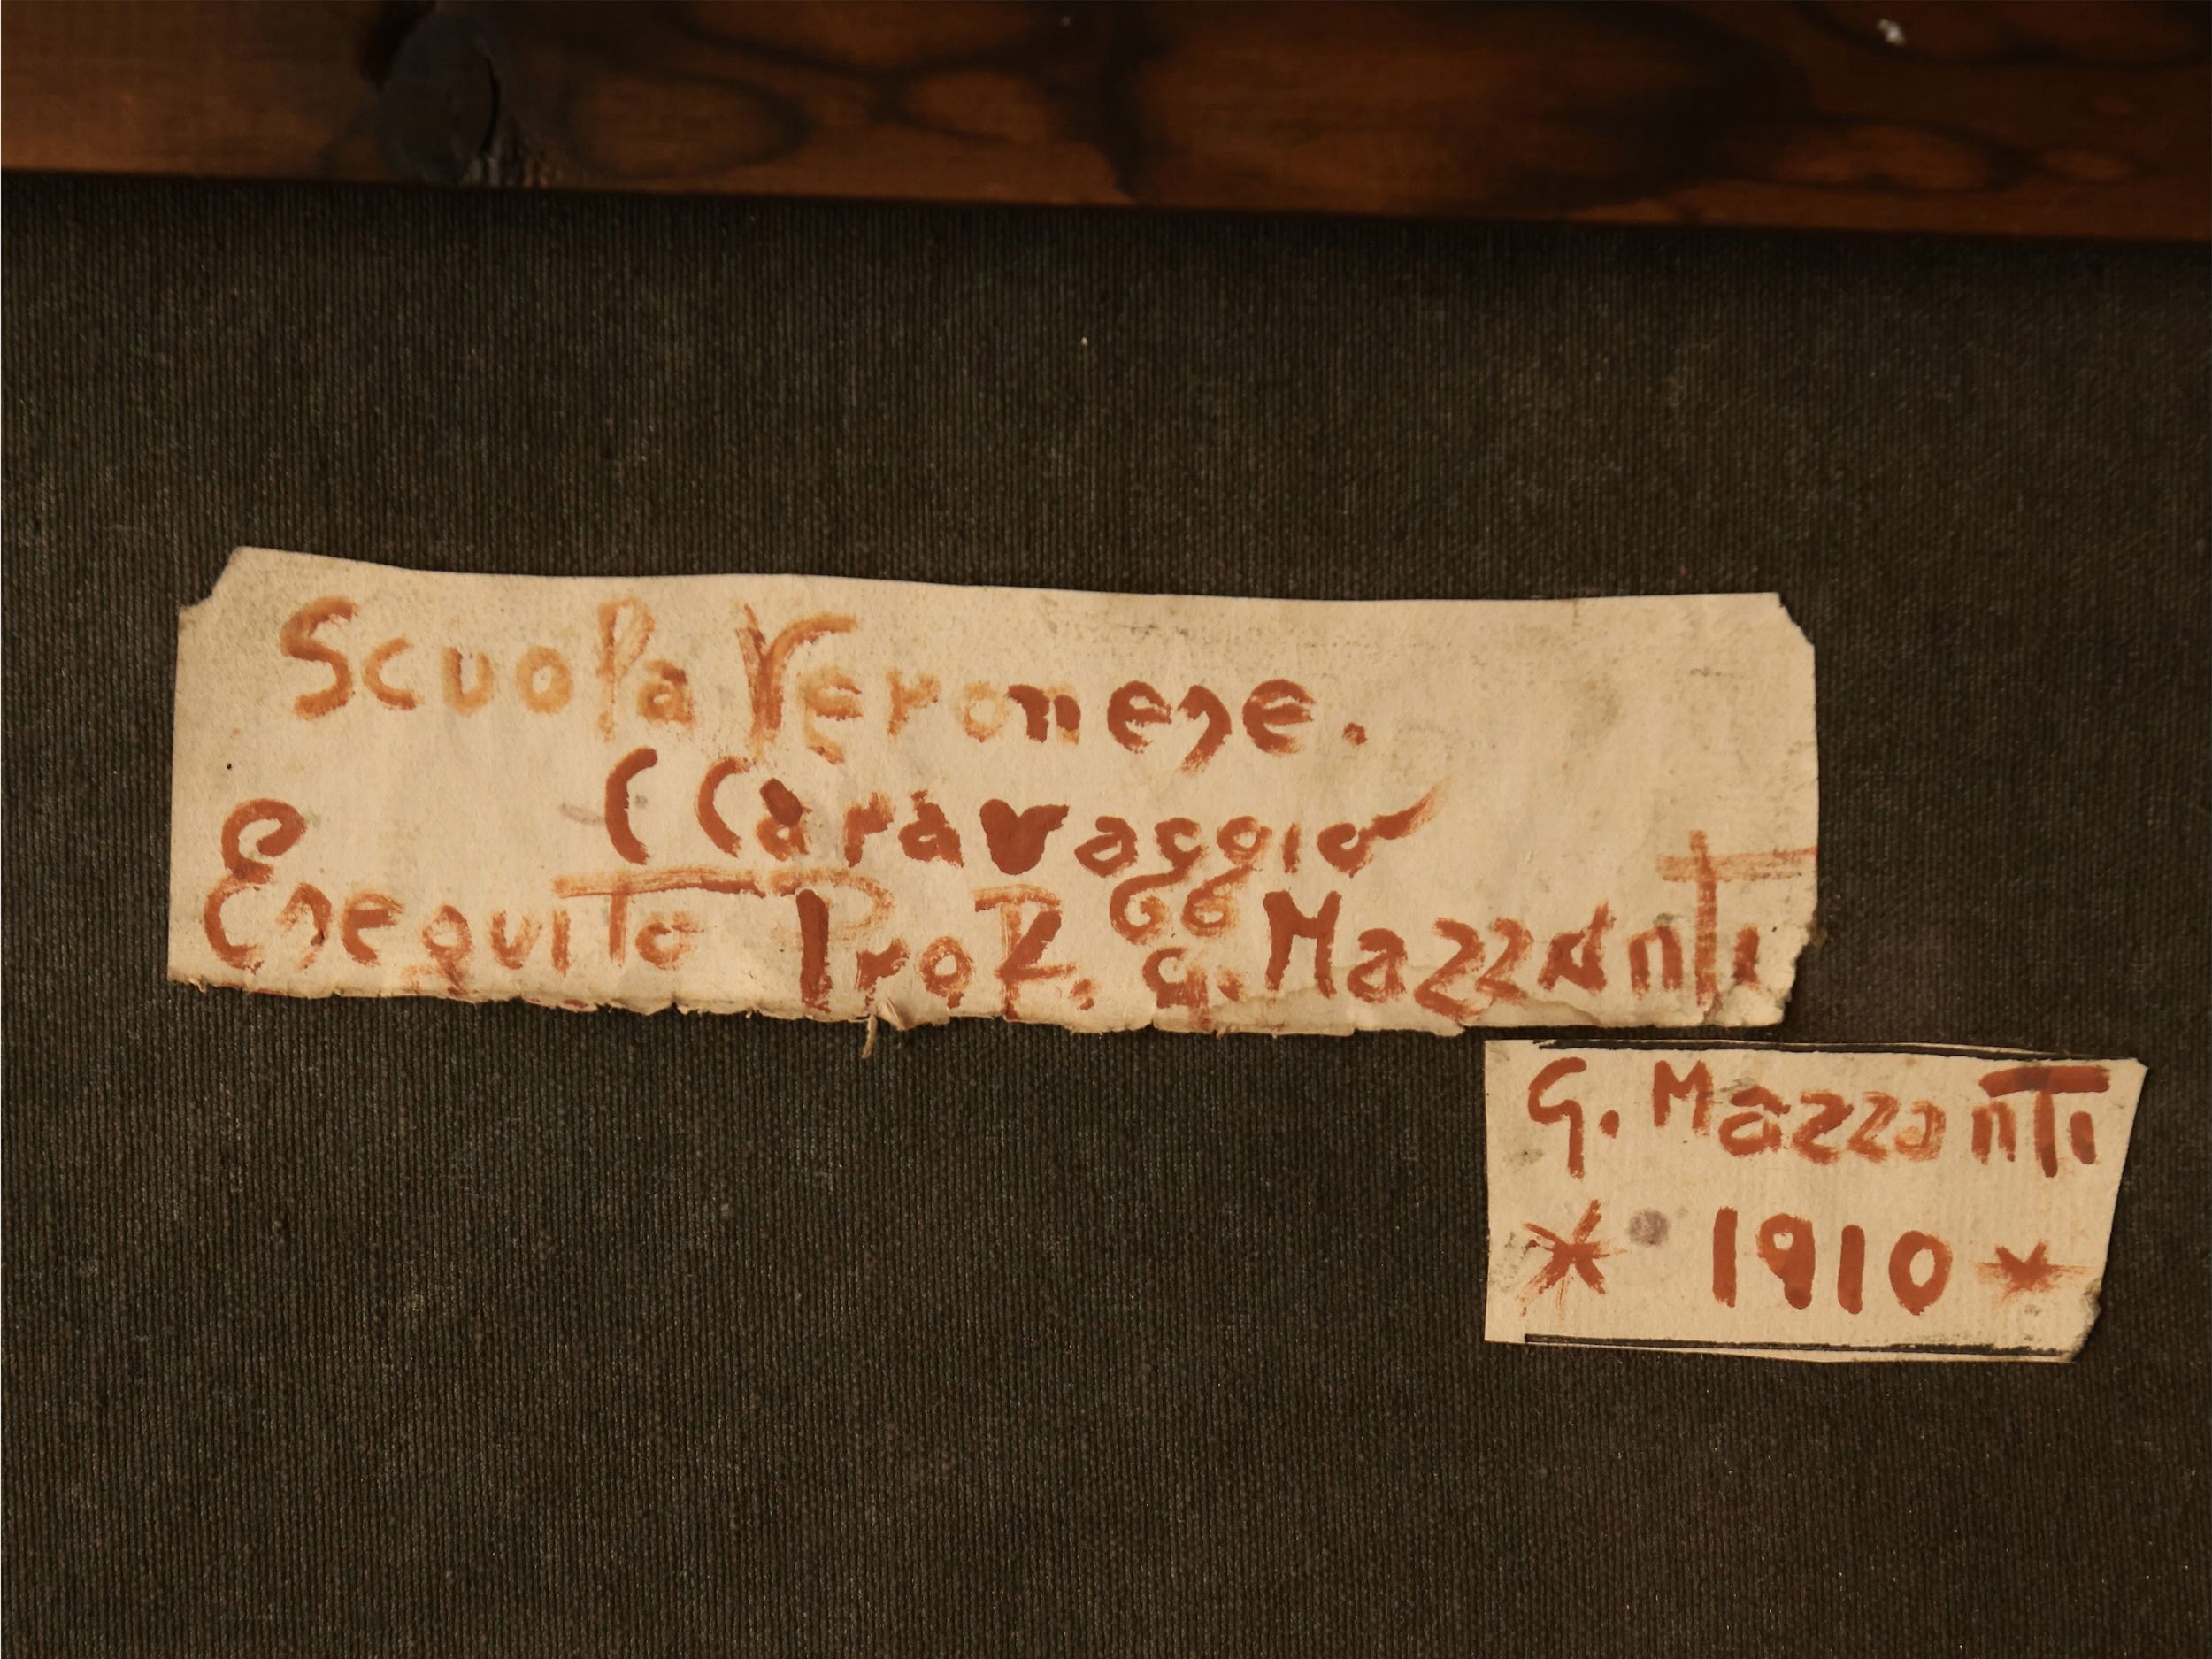 Scuola Veronese.
(Caravaggio
Eseguito Prof. G. Mazzanti
G. Mazzanti
* 1910 *